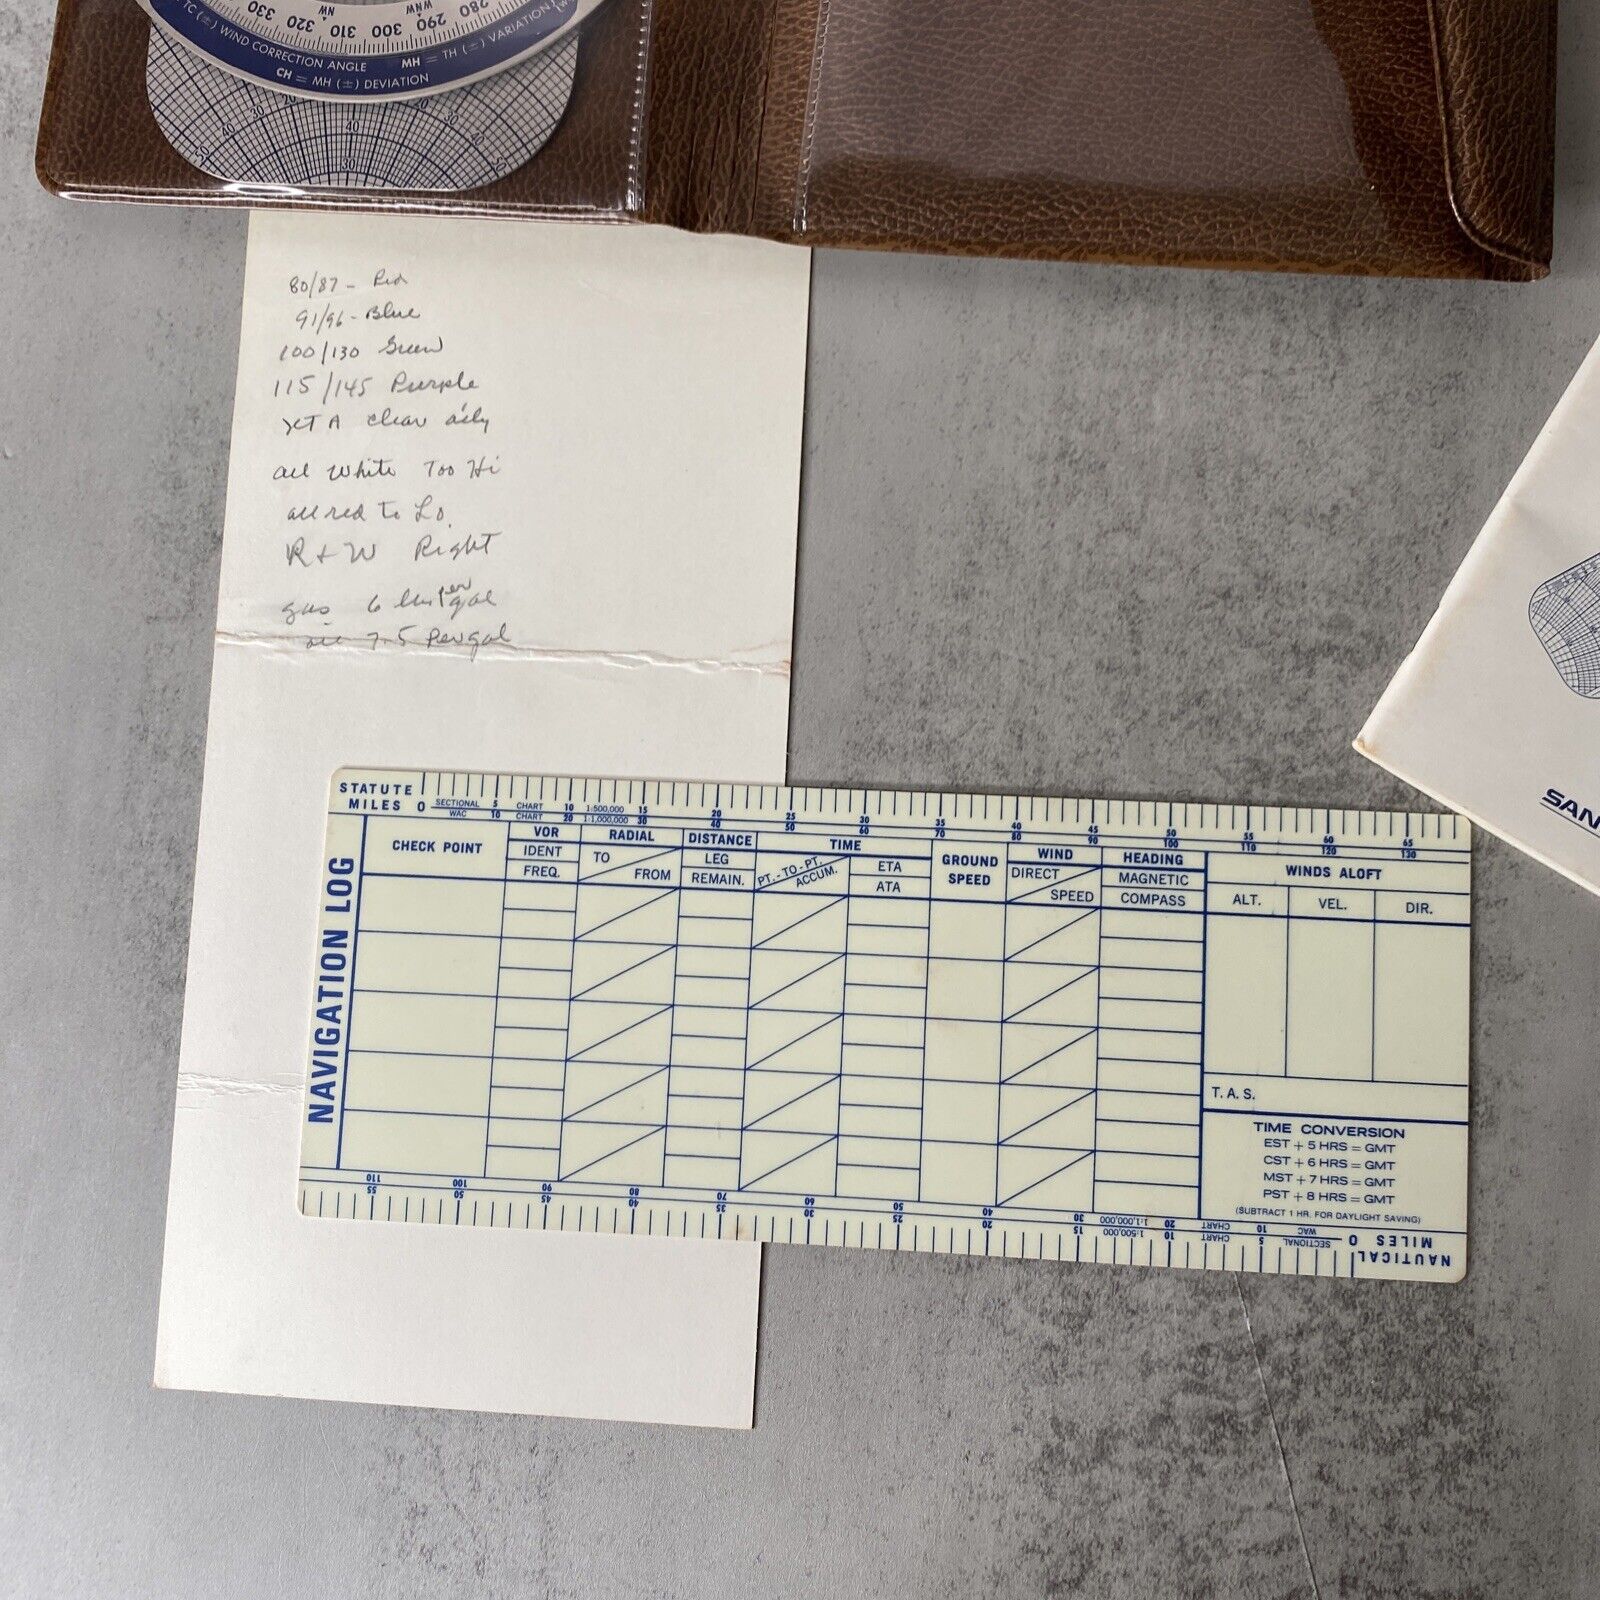 330 320 NW 310 300 WNW 290 280
TC (±) WIND CORRECTION ANGLE MH = TH (±) VARIATION
CH = MH (±) DEVIATION
50 40 30 20 40 20 30 40 50
30
80/87 - Red
91/96 - Blue
100/130 Green
115/145 Purple
JET A clear oily
all White Too Hi
all red to Lo.
R + W Right
gas 6 per gal
oil 7.5 Per gal
SAN
STATUTE
MILES 0
SECTIONAL 5 CHART 10 1:500,000 15 20 25 30 35 40 45 50 55 60 65
WAC 10 CHART 20 1:1,000,000 30 40 50 60 70 80 90 100 110 120 130
NAVIGATION LOG
CHECK POINT
VOR
IDENT
FREQ.
RADIAL
TO
FROM
DISTANCE
LEG
REMAIN.
TIME
PT.-TO-PT.
ACCUM.
ETA
ATA
GROUND
SPEED
WIND
DIRECT
SPEED
HEADING
MAGNETIC
COMPASS
WINDS ALOFT
ALT. VEL. DIR.
T. A. S.
TIME CONVERSION
EST + 5 HRS = GMT
CST + 6 HRS = GMT
MST + 7 HRS = GMT
PST + 8 HRS = GMT
(SUBTRACT 1 HR. FOR DAYLIGHT SAVING)
NAUTICAL
MILES 0
SECTIONAL 5 CHART 10 1:500,000 15 20 25 30 35 40 45 50 55
WAC 10 CHART 20 1:1,000,000 30 40 50 60 70 80 90 100 110